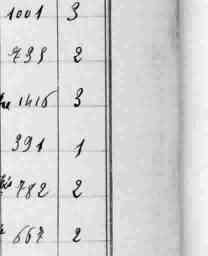 1001 3
735 2
1416 3
391 1
782 2
667 2